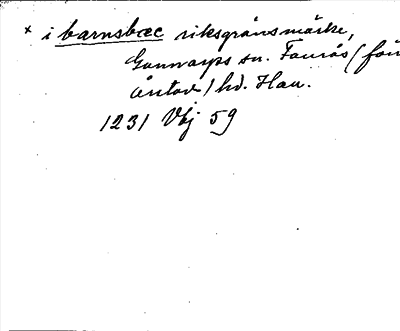 × i barnsbæc riksgränsmärke,
Gunnarps sn. Faurås (för
Årstad) hd. Hall.
1231 Vbj 59